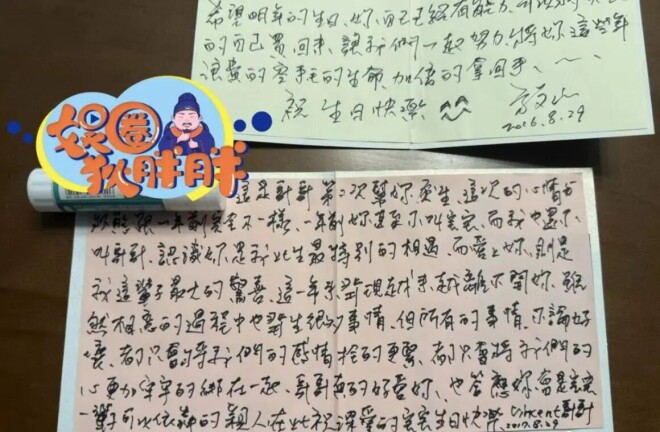 希望明年的生日、妳自己已經有能力、可以將
的自己買回來、讓我們一起努力、將妳這些年
浪費的寶貴的生命、加倍的拿回來、
祝 生日快樂
2016.8.29
娱圈
扒胖胖
這是哥哥第二次幫妳慶生、這次的心情与
狀態跟一年前完全不一樣、一年前妳甚至不叫宝宝、而我也還不
叫哥哥、認識妳是我此生最特別的相遇、而愛上妳、則是
我這輩子最大的驚喜、這一年來到現在我來越離不開妳、雖
然相愛的過程中也發生很多事情、但所有的事情、不論好
壞、都只會將我們的感情拴的更緊、都只會將我們的
心更加牢牢的綁在一起、哥哥真的好愛妳、也答應妳、會是宝宝
一輩子可以依靠的親人在此祝深愛的宝宝生日快樂 Vincent哥哥
2017.8.29